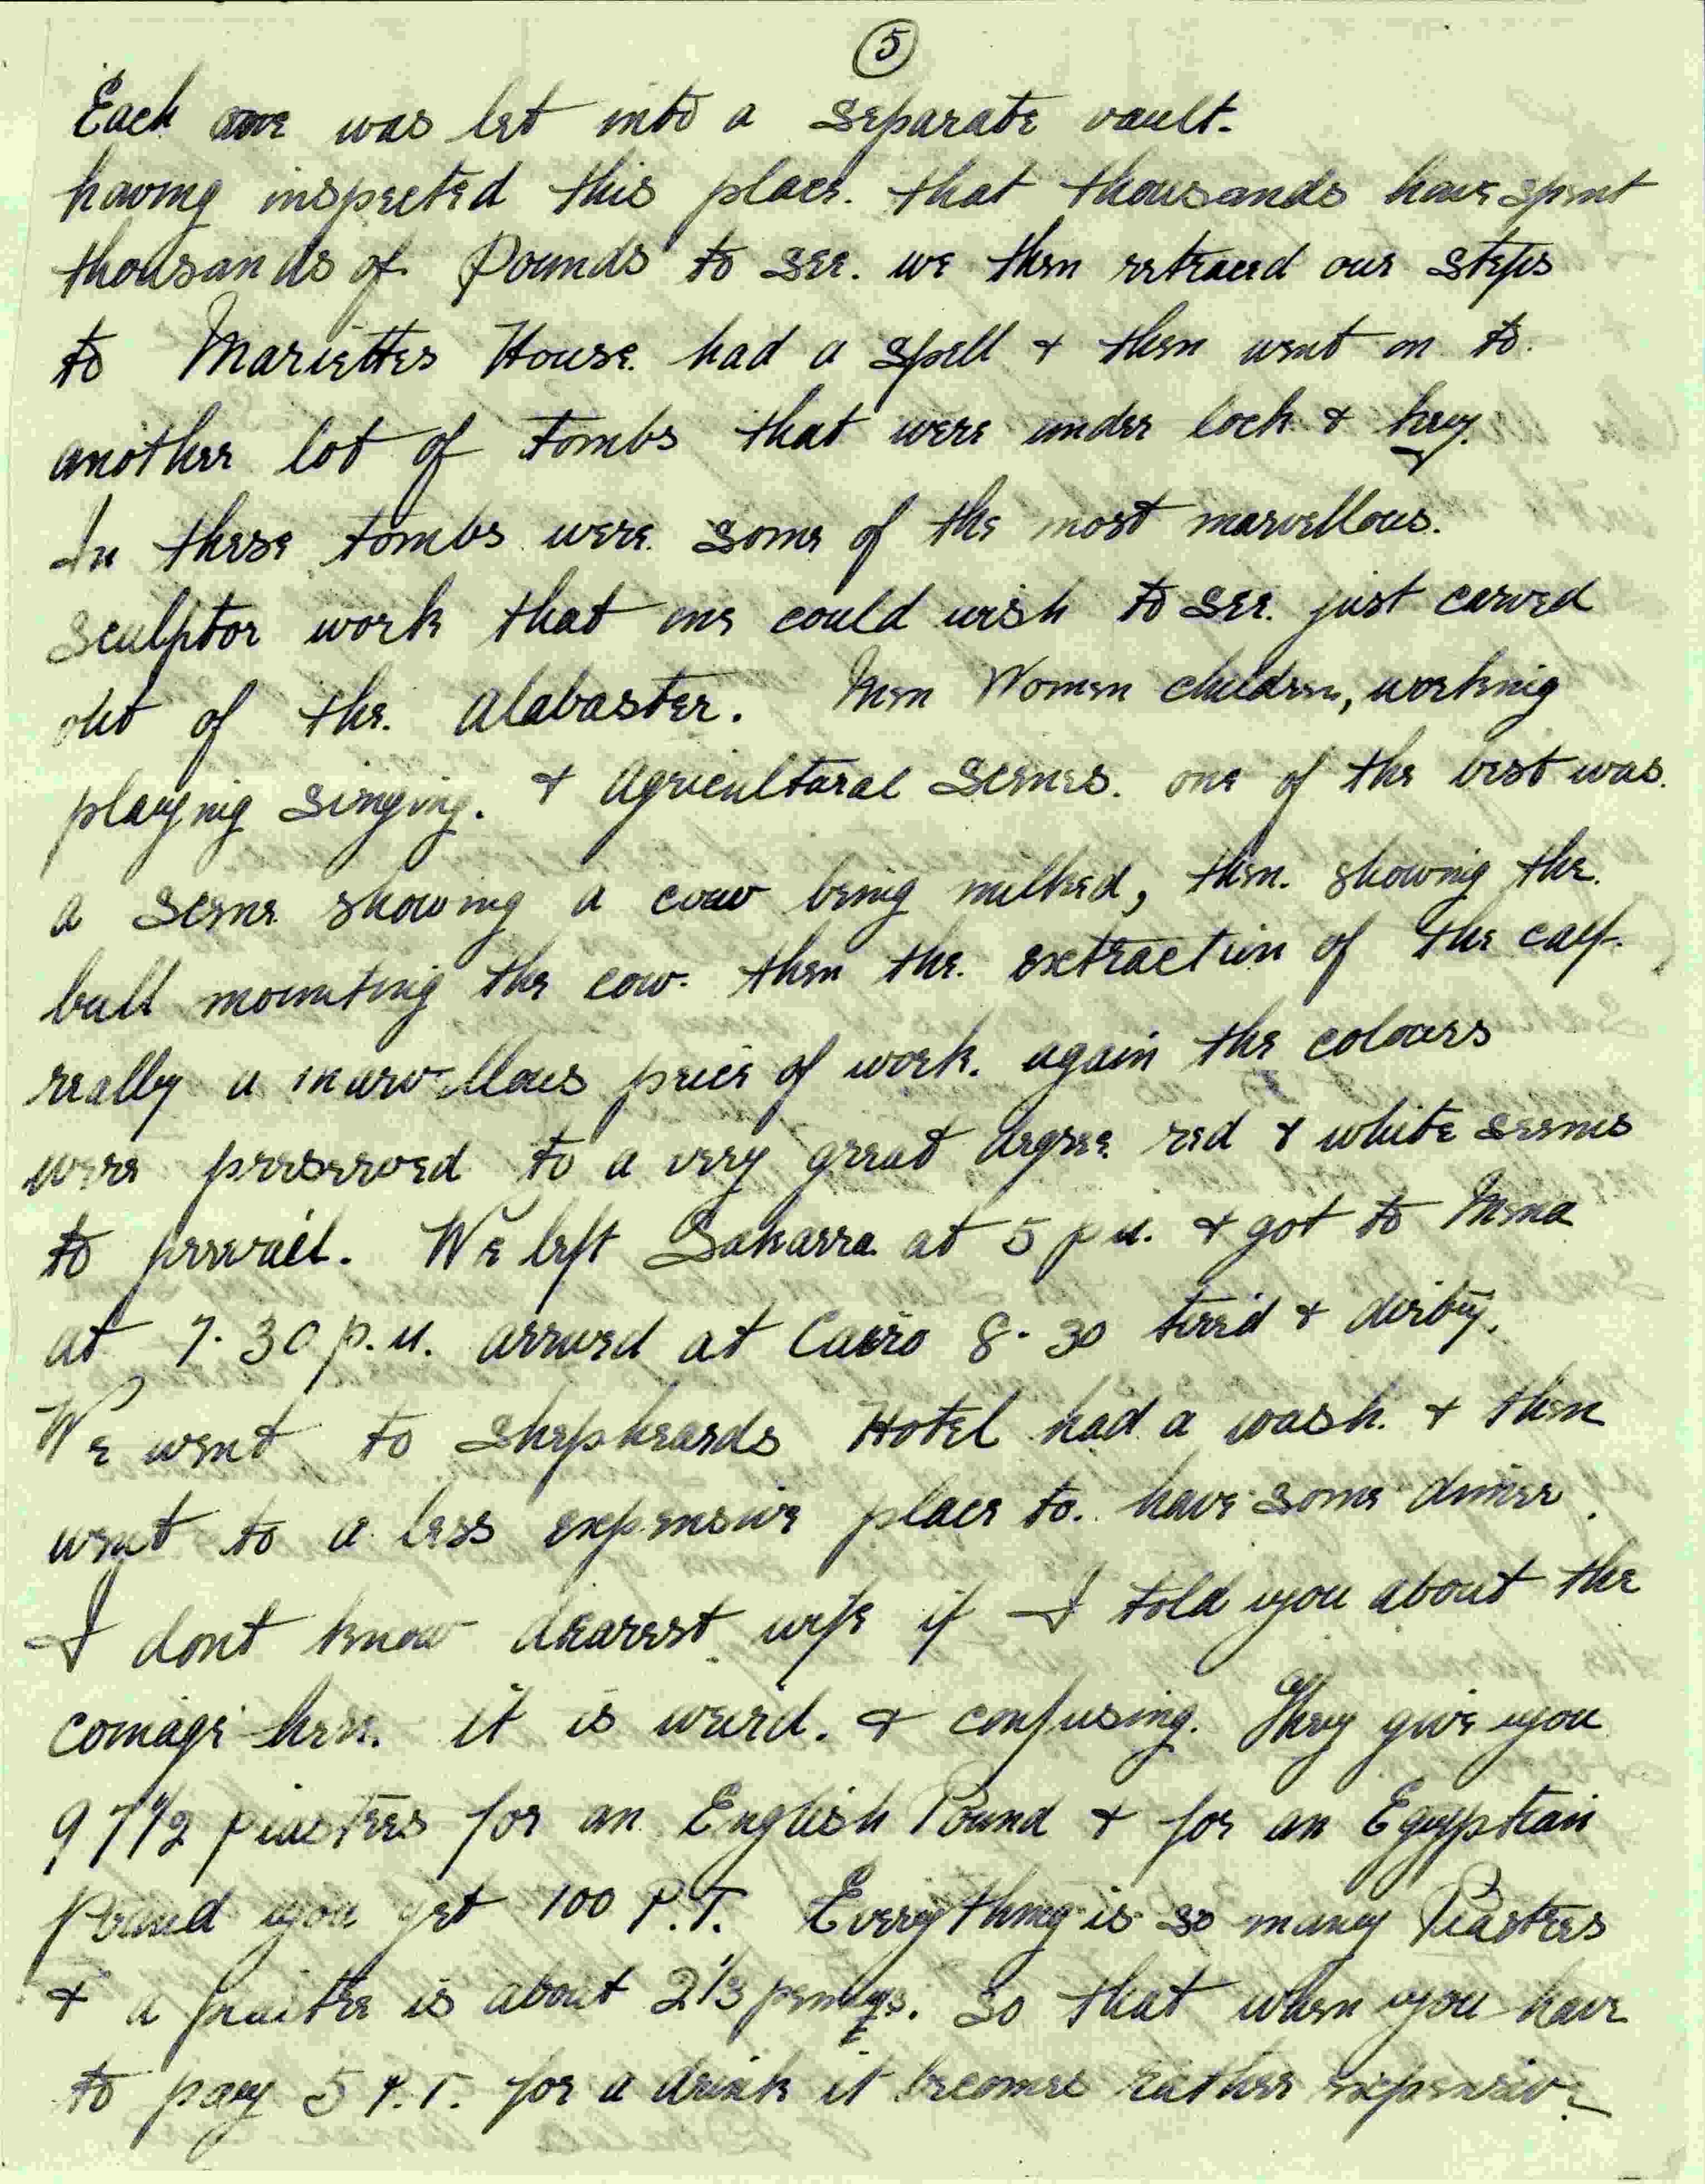 5
Each one was let into a separate vault.
having inspected this place. that thousands have spent
thousands of Pounds to see. we then retraced our steps
to Mariettes House. had a spell & then went on to.
another lot of Tombs that were under lock & key.
In these tombs were some of the most marvellous.
sculptor work that one could wish to see. just carved
out of the. alabaster. Men Women children, working
playing singing. & agricultural scenes. one of the best was.
a scene showing a cow being milked, then. showing the.
bull mounting the cow. then the. extraction of the calf.
really a marvellous peice of work. again the colours
were preserved to a very great degree. red & white seems
to prevail. We left Sakarra at 5 p.m. & got to Mena
at 7.30 p.m. arrived at Cairo 8.30 tired & dirty.
We went to Shepheards Hotel had a wash. & then
went to a less expensive place to. have some dinner.
I dont know dearest wife if I told you about the
coinage here. it is wierd. & confusing. They give you
97 1/2 piastres for an English Pound & for an Egyptian
Pound you get 100 P.T. Everything is so many Piastres
& a piastre is about 2 1/3 pennys. so that when you have
to pay 5 P.T. for a drink it becomes rather expensive